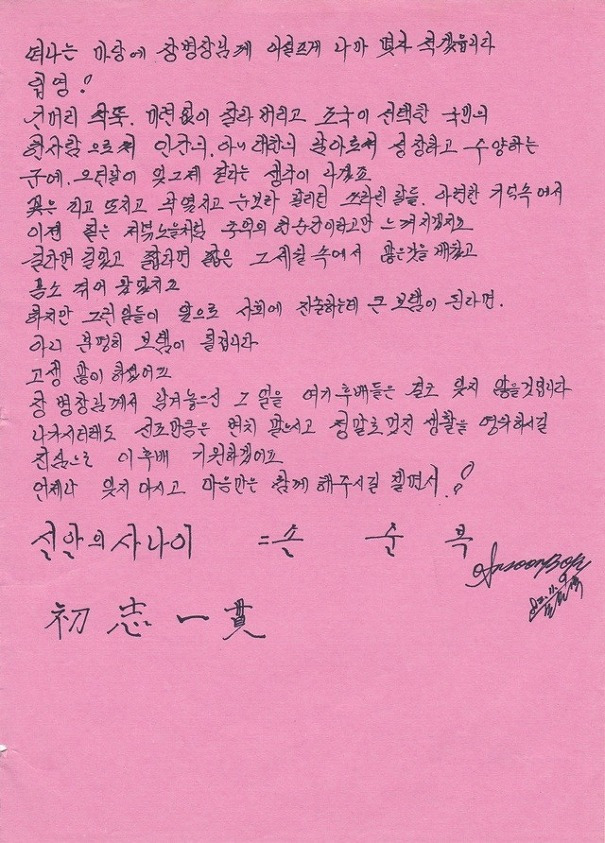 떠나는 마당에 장병장님께 아쉬르게 나마 몇자 적겠읍니다
입영!
긴머리 싹뚝. 미련없이 잘라 버리고 조국이 선택한 국민의
한사람으로써 인간의. 아니 대한의 남아로써 성장하고 수양하는
군에. 오던날이 엊그제 같다는 생각이 나겠죠
꽃은 지고 또지고 속 눈보라 휘날리던 쓰라린 날들. 아련한 기억속에서
이젠 짙은 저녁노을처럼 추억의 한순간이라고만 느껴지겠지요
길다면 길었고 짧다면 짧은 그 세월 속에서 많은것을 배웠고
몸소 겪어 왔겠지요
하지만 그런일들이 앞으로 사회에 진출하는데 큰 보탬이 된다면.
아니 분명히 보탬이 될겁니다
고생 많이 하셨어요
장 병장님께서 남겨놓으신 그 일을 여기 후배들은 결코 잊지 않을것입니다
나가시더래도 선조만큼은 변치 말으시고 정말로 멋진 생활을 영위하시길
진심으로 이 후배 기원하겠어요
언제나 잊지 마시고 마음만은 함께 해주시길 빌면서!
신안의 사나이 = 손 순 복
初志一貫